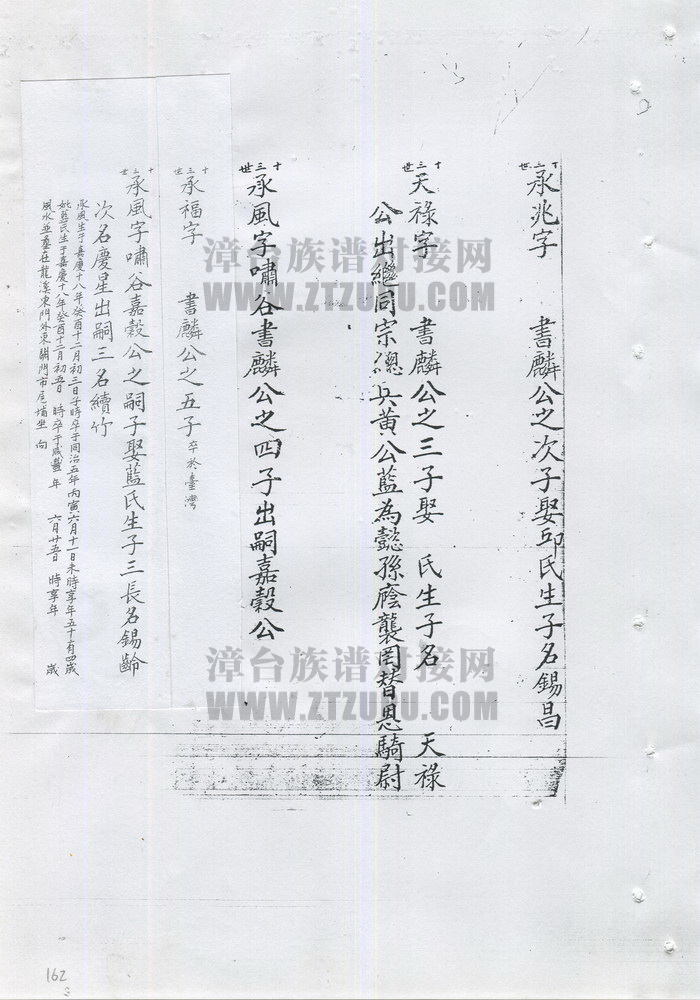 十三世
承兆字 書麟公之次子娶邱氏生子名錫昌
十三世
天祿字 書麟公之三子娶 氏生子名 天祿
公出繼同宗總兵黃公藍為懿孫廕襲罔替恩騎尉
十三世
承風字嘯谷書麟公之四子出嗣嘉穀公
十三世
承福字 書麟公之五子卒於臺灣
十三世
承風字嘯谷嘉穀公之嗣子娶藍氏生子三長名錫齡
次名慶星出嗣三名續竹
承風生于嘉慶十八年癸酉十二月初三日子時卒于同治五年丙寅六月十一日未時享年五十有四歲
妣藍氏生于嘉慶十八年癸酉十二月初五日 時卒于咸豐 年 六月廿五日 時享年 歲
風水並臺在龍溪東門外東關門市尾 坐 向
漳台族谱对接网
WWW.ZTZUPU.COM
漳台族谱对接网
WWW.ZTZUPU.COM
162